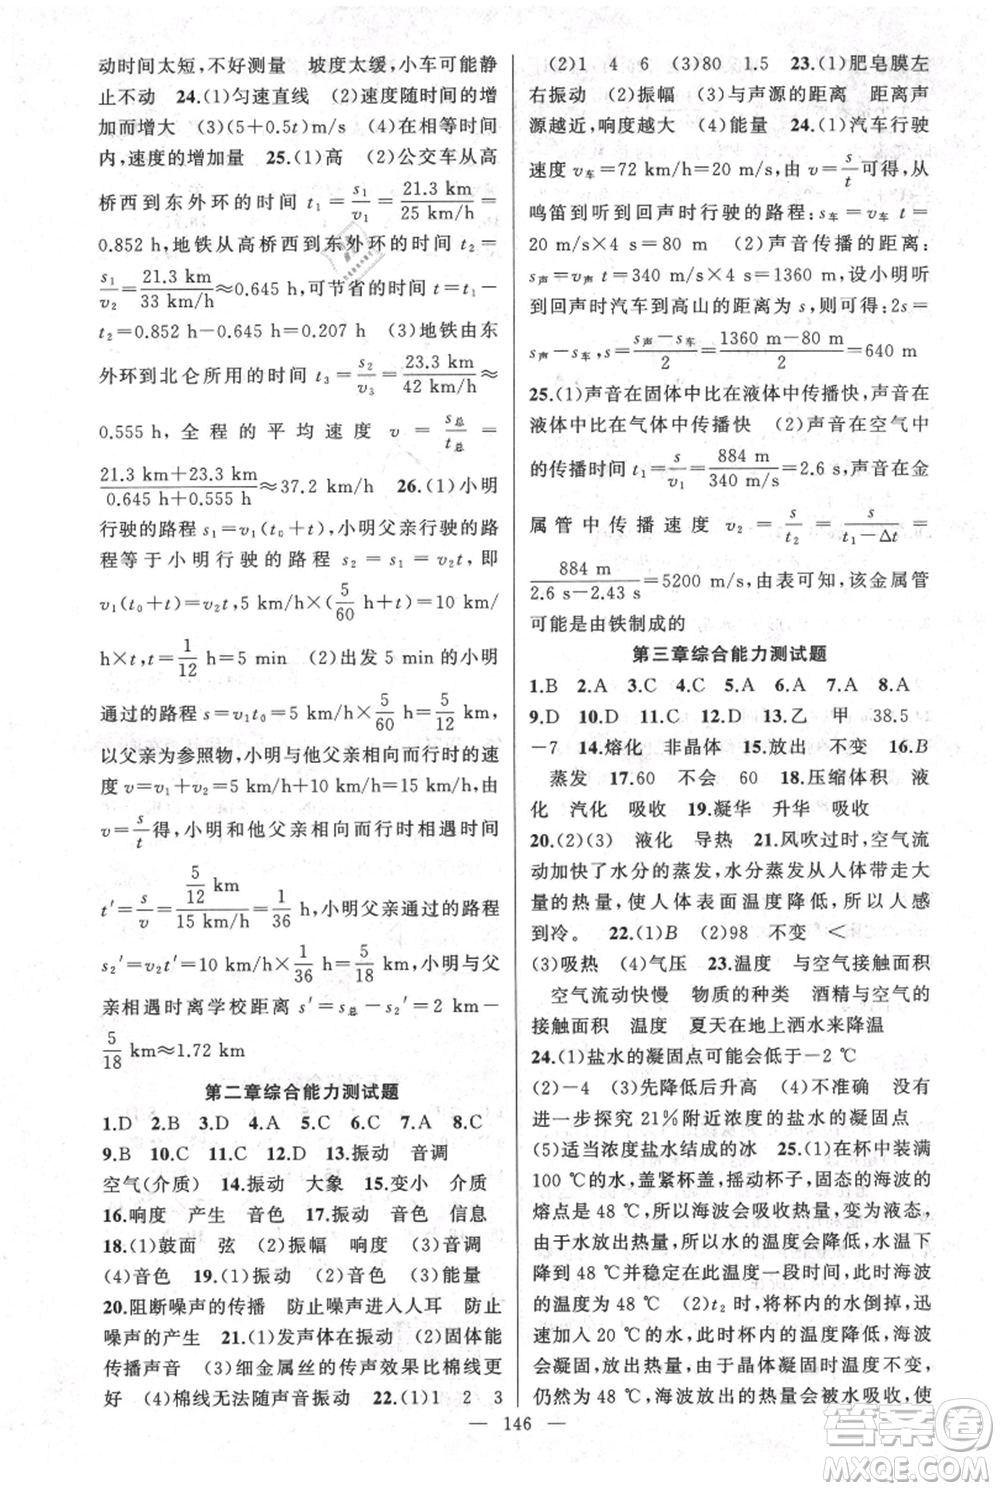 动时间太短,不好测量　坡度太缓,小车可能静
止不动　24.(1)匀速直线　(2)速度随时间的增
加而增大　(3)(5+0.5t)m/s　(4)在相等时间
内,速度的增加量　25.(1)高　(2)公交车从高
桥西到东外环的时间 t₁=s₁/v₁=21.3 km/25 km/h=
0.852 h,地铁从高桥西到东外环的时间 t₂=
s₁/v₂=21.3 km/33 km/h≈0.645 h,可节省的时间 t=t₁-
t₂=0.852 h-0.645 h=0.207 h　(3)地铁由东
外环到北仑所用的时间 t₃=s₂/v₃=23.3 km/42 km/h≈
0.555 h,全程的平均速度 v=s总/t总=
21.3 km+23.3 km/0.645 h+0.555 h≈37.2 km/h　26.(1)小明
行驶的路程 s₁=v₁(t₀+t),小明父亲行驶的路
程等于小明行驶的路程 s₂=s₁=v₂t,即
v₁(t₀+t)=v₂t,5 km/h×(5/60 h+t)=10 km/
h×t,t=1/12 h=5 min　(2)出发前的小明
通过的路程 s=v₁t₀=5 km/h×5/60 h=5/12 km,
以父亲为参照物,小明与他父亲相向而行时的速
度 v=v₁+v₂=5 km/h+10 km/h=15 km/h,由
v=s/t得,小明和他父亲相向而行时相遇时间
t′=s/v=5/12 km/15 km/h=1/36 h,小明父亲通过的路程
s₂′=v₂t′=10 km/h×1/36 h=5/18 km,小明与父
亲相遇时离学校距离 s′=s总-s₂′=2 km-
5/18 km≈1.72 km
第二章综合能力测试题
1.D　2.B　3.D　4.A　5.D　6.C　7.A　8.C
9.B　10.C　11.C　12.D　13.振动　音调
空气(介质)　14.振动　大象　15.变小　介质
16.响度　产生　音色　17.振动　音色　信息
18.(1)鼓面　弦　(2)振幅　响度　(3)音调
(4)音色　19.(1)振动　(2)音色　(3)能量
20.阻断噪声的传播　防止噪声进入人耳　防止
噪声的产生　21.(1)发声体在振动　(2)固体能
传播声音　(3)细金属丝的传声效果比棉线更
好　(4)棉线无法随声音振动　22.(1)1　2　3
(2)1　4　6　(3)80　1.5　23.(1)肥皂膜左
右振动　(2)振幅　(3)与声源的距离　距离声
源越近,响度越大　(4)能量　24.(1)汽车行驶
速度 v车=72 km/h=20 m/s,由 v=s/t可得,从
鸣笛到听到回声时行驶的路程:s车=v车 t=
20 m/s×4 s=80 m　(2)声音传播的距离:
s声=v声t=340 m/s×4 s=1360 m,设小明听
到回声时汽车到高山的距离为 s,则可得:2s=
s声-s车,s=s声-s车/2=1360 m-80 m/2=640 m
25.(1)声音在固体中比在液体中传播快,声音在
液体中比在气体中传播快　(2)声音在空气中
的传播时间 t₁=s/v₁=884 m/340 m/s=2.6 s,声音在金
属管中传播速度 v₂=s/t₂=s/t₁-Δt=
884 m/2.6 s-2.43 s=5200 m/s,由表可知,该金属管
可能是由铁制成的
第三章综合能力测试题
1.B　2.A　3.C　4.C　5.A　6.A　7.A　8.A
9.D　10.D　11.C　12.D　13.乙　甲　38.5
-7　14.熔化　非晶体　15.放出　不变　16.B
蒸发　17.60　不会　60　18.压缩体积　液
化　汽化　吸收　19.凝华　升华　吸收
20.(2)(3)　液化　导热　21.风吹过时,空气流
动加快了水分的蒸发,水分蒸发从人体带走大
量的热量,使人体表面温度降低,所以人感
到冷。　22.(1)B　(2)98　不变　<
(3)吸热　(4)气压　23.温度　与空气接触面积
空气流动快慢　物质的种类　酒精与空气的
接触面积　温度　夏天在地上洒水来降温
24.(1)盐水的凝固点可能会低于-2 ℃
(2)-4　(3)先降低后升高　(4)不合适　没有
进一步探究 21%附近浓度的盐水的凝固点
(5)适当浓度盐水结成的冰　25.(1)在杯中装满
100 ℃的水,盖紧杯盖,摇动杯子,固态的海波的
熔点是 48 ℃,所以海波会吸收热量,变为液态,
由于水放出热量,所以水的温度会降低,水温下
降到 48 ℃并稳定在此温度一段时间,此时海波
的温度为 48 ℃　(2)t₂ 时,将杯内的水倒掉,迅
速加入 20 ℃的水,此时杯内的水温度低,海波
放出热量,凝固放热,由于晶体凝固时温度不变,
仍然为 48 ℃,海波放出的热量会被水吸收,使
— 146 —
答案圈
MXQE.COM